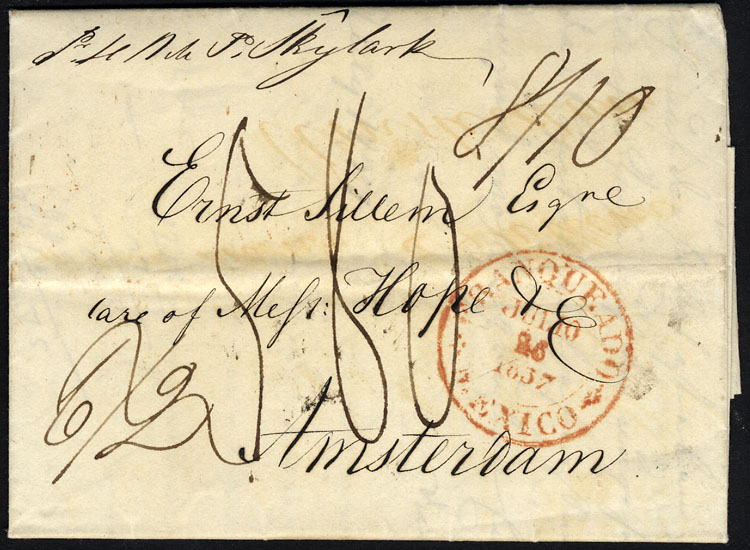 Skylark
8/10
Ernst Sillem Esqre
Care of Messr: Hope & C
6/2
Amsterdam
FRANQUEADO
JULIO
26
1837
MEXICO